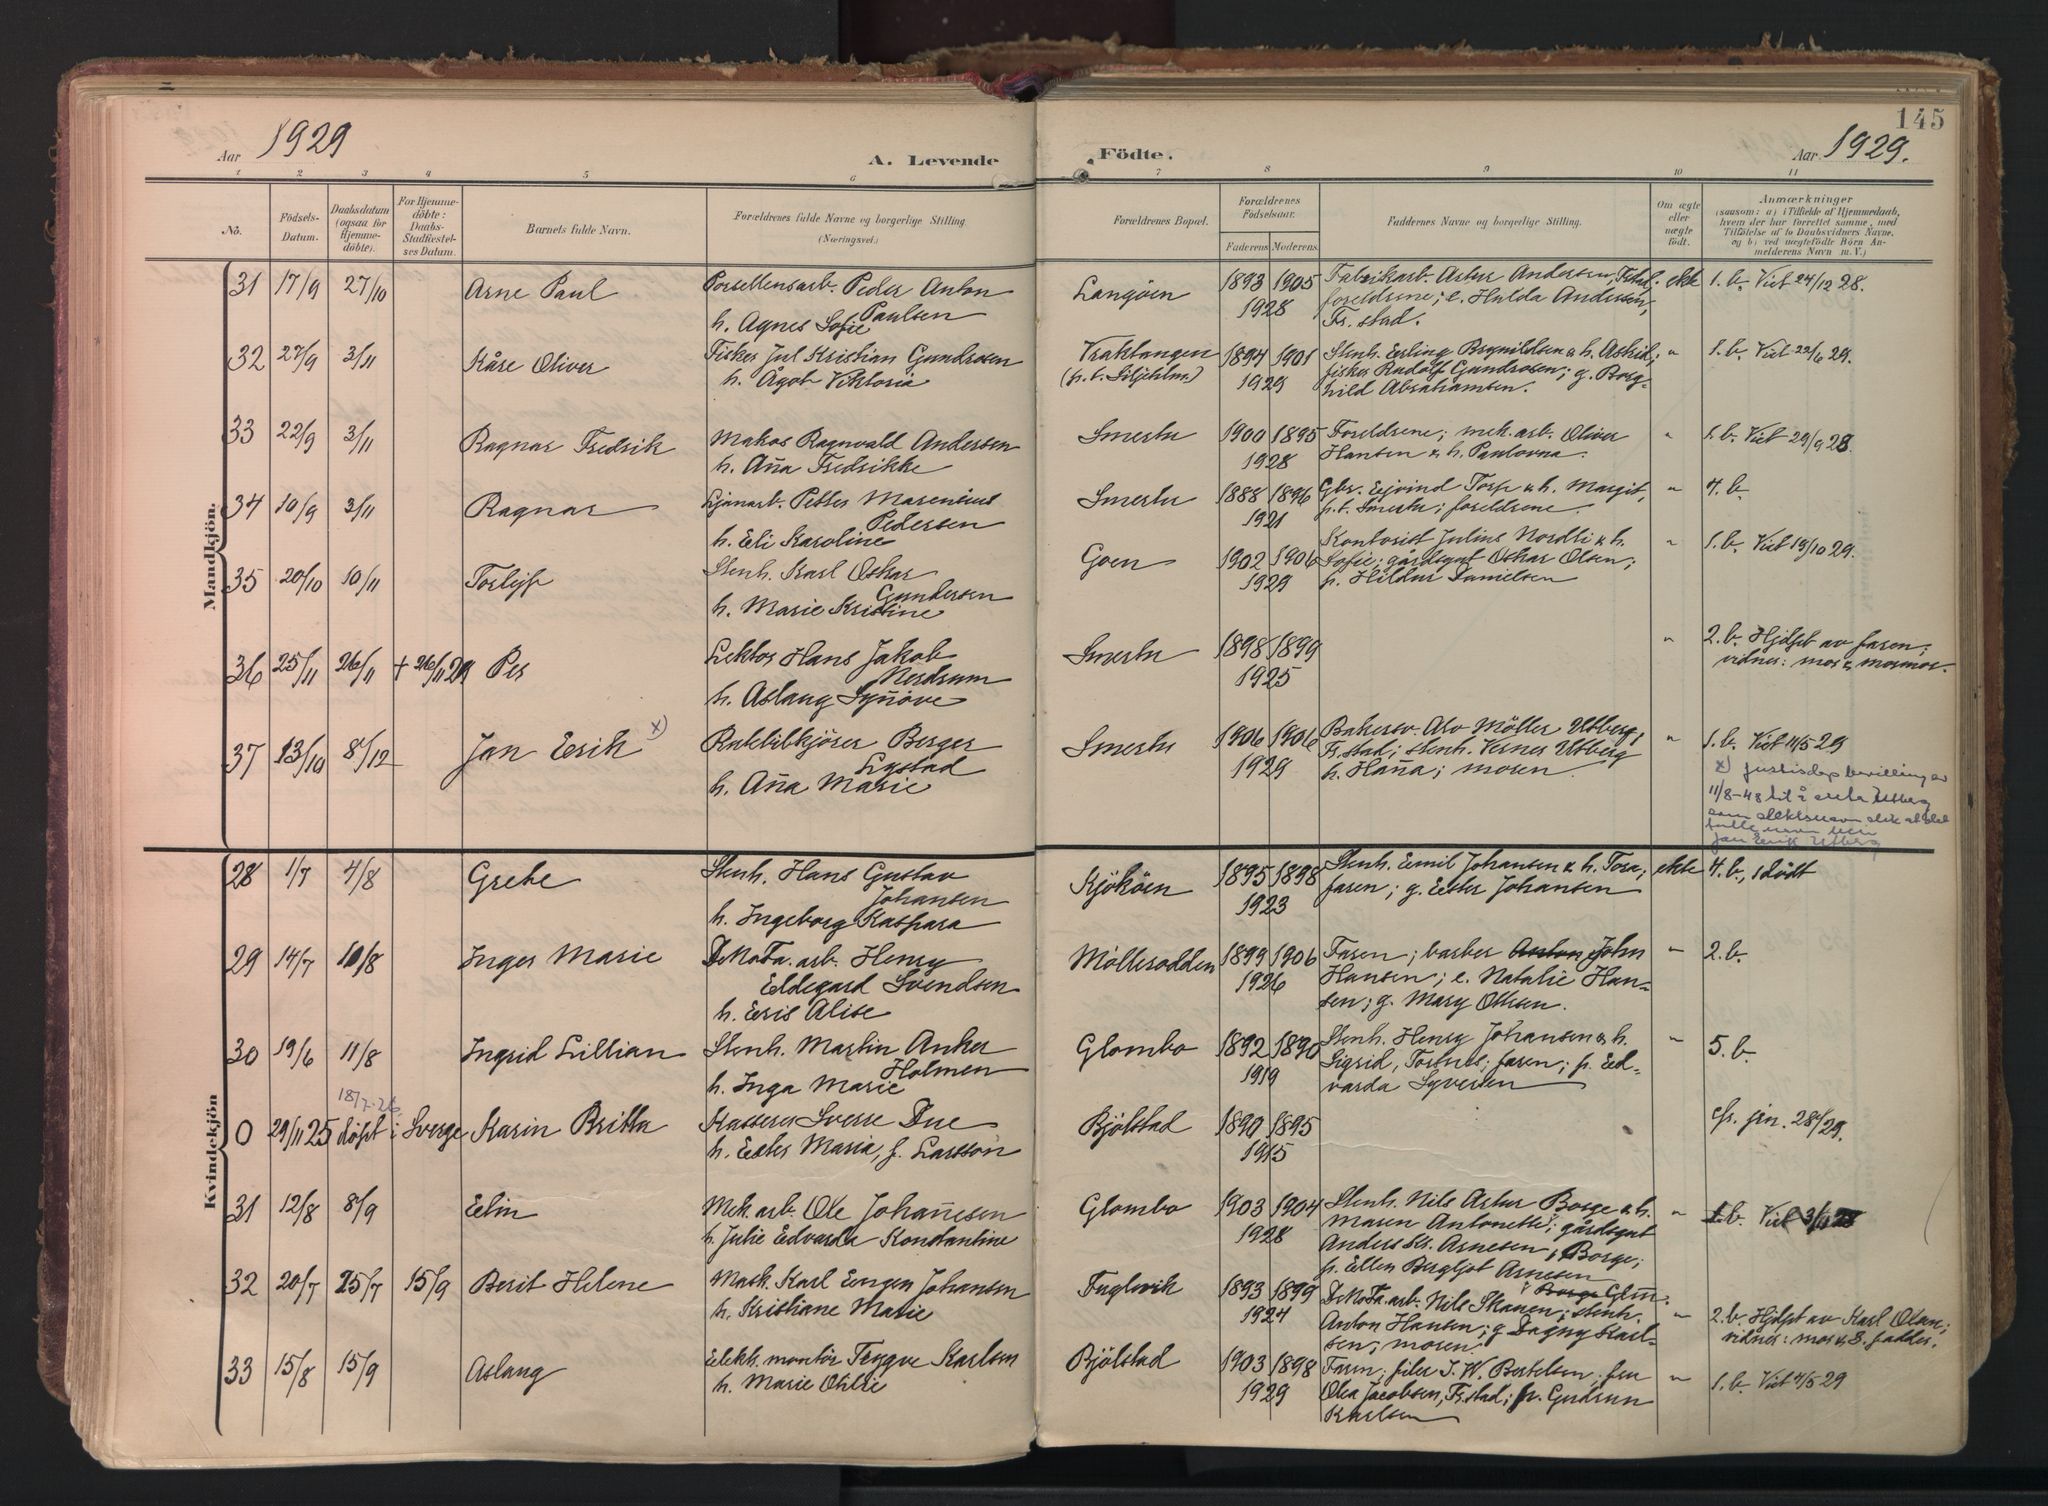 145
Aar 1929
A. Levende
Födte.
Aar 1929.
1 2 3 4 5 6 7 8 9 10 11
No.
Födsels-Datum.
Daabsdatum (ogsaa for Hjemmedöbte).
For Hjemmedöbte: Daabs-Stadfæstelses Datum.
Barnets fulde Navn.
Forældrenes fulde Navne og borgerlige Stilling. (Næringsvei.)
Forældrenes Bopæl.
Forældrenes Födselsaar.
Faderens Moderens.
Faddernes Navne og borgerlige Stilling.
Om ægte eller uægte födt.
Anmærkninger
(saasom: a) i Tilfælde af Hjemmedaab, hvem der har forrettet samme, med Tilföielse af to Daabsvidners Navne, og b) ved uægtefödte Börn Anmelderens Navn m. V.)
Mandkjön.
31 17/9 27/10 Arne Paul
Porsellensarb. Peder Anton
Paulsen
h. Agnes Sofie
Langöen 1893 1905
1928
Fabrikarb. Artur Andersen,
foreldrene; e. Hulda Andersen,
Fr.stad.
ekte 1. b. Viet 24/12 28.
32 27/9 3/11 Kåre Oliver
Fisker Jul Kristian Gundrosen
h. Ågot Viktoria
Vraktangen
1894 1901
1929
Stenh. Erling Brynildsen & h. Astrid;
fisker Rudolf Gundrosen; g. Borg-
hild Abrahamsen.
" 1. b. Viet 22/6 29.
33 22/9 3/11 Ragnar Fredrik
Makor Ragnvald Andersen
h. Anna Fredrikke
Smertu 1900 1895
1928
Foreldrene; mek. arb. Oliver
Hansen & h. Paulovna.
" 1. b. Viet 29/9 28.
34 10/9 3/11 Ragnar
Petter Marenius
Pedersen
h. Eli Karoline
Smertu 1888 1896
1921
Gbr. Eivind Torp & h. Margit,
p.t. Smertu; foreldrene.
" 4. b.
35 20/10 10/11 Torleif
Stenh. Karl Oskar
Gundersen
h. Marie Kristine
Goen 1902 1906
1929
Kontorist Julius Nordli & h.
Sofie; gårdsgut Oskar Olsen;
p. Hildur Danielsen
" 1. b. Viet 19/10 29.
36 25/11 26/11 + 26/11 29 Per
Lektor Hans Jakob
Nordrum
h. Aslaug Synnöve
Smertu 1898 1899
1925
" 2. b. Hjdöpt av faren;
vidner: mor & mormor.
37 13/10 8/12 Jan Erik x)
Rutebilkjörer Berger
Lystad
h. Anna Marie
Smertu 1906 1906
1929
Bakersv. Alv Möller Utberg,
Fr.stad; stenh. Verner Utberg
h. Hanna; moren.
" 1. b. Viet 11/5 29
x) Justisdep bevilling av
11/8-48 til å anta Utberg
som slektsnavn slik at det
fulle navn blir
Jan Erik Utberg
Kvindekjön
28 1/7 4/8 Grete
Stenh. Hans Gustav
Johansen
h. Ingeborg Kaspara
Kjököen 1895 1898
1923
Stenh. Emil Johansen & h. Tora;
faren; g. Ester Johansen
ekte 4. b., 1 dödt
29 14/7 10/8 Inger Marie
DeNoFa. arb. Henry
Eldegard Svendsen
h. Eris Alise
Möllerodden 1899 1906
1926
Faren; barber Anton John
Hansen; e. Natalie Han-
sen; g. Mary Ottesen.
" 2. b.
30 19/6 11/8 Ingrid Lillian
Stenh. Martin Anker
Holmen
h. Inga Marie
Glombo 1892 1890
1919
Stenh. Henry Johansen & h.
Sigrid, Torsnes; faren; p. Ed-
varda Syversen
" 5. b.
18/7-26
0 29/11 25 döpt i Sverge Karin Britta
Kasserer Sverre Due
h. Ester Maria, f. Larsson
Bjölstad 1890 1895
1915
cfr. jrn. 28/29.
31 12/8 8/9 Elin
Mek. arb. Ole Johannesen
h. Julie Edvarda Konstantine
Glombo 1903 1904
1928
Stenh. Nils Artur Borge & h.
Maren Antonette; gårdsgut
Anders Kr. Arnesen, Borge;
p. Ellen Bergljot Arnesen
" 1. b. Viet
32 20/7 25/7 15/9 Berit Helene
Mask. Karl Eugen Johansen
h. Kristiane Marie
Fuglevik 1893 1899
1924
DeNoFa. arb. Nils Skanen; stenh.
Anton Hansen; g. Dagny Karl-
sen; moren.
" 2. b. Hjdöpt av Karl Olsen;
vidner: mor & 3. fadder.
33 15/8 15/9 Aslaug
Elekt. montör Trygve Karlsen
h. Marie Otilie
Bjölstad 1903 1898
1929
Faren; filer I. W. Bertelsen; fru
Olea Jacobsen, Fr.stad; p. Gudrun
Karlsen
" 1. b. Viet 4/5 29